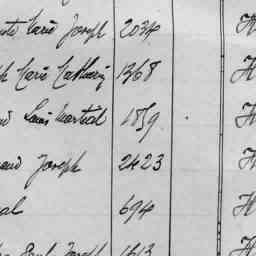 Marie Joseph 2034 H
Marie Catherin 1368 H
Louis Martial 1859 H
Joseph 2423 H
al 694 H
Paul Joseph 1613 H